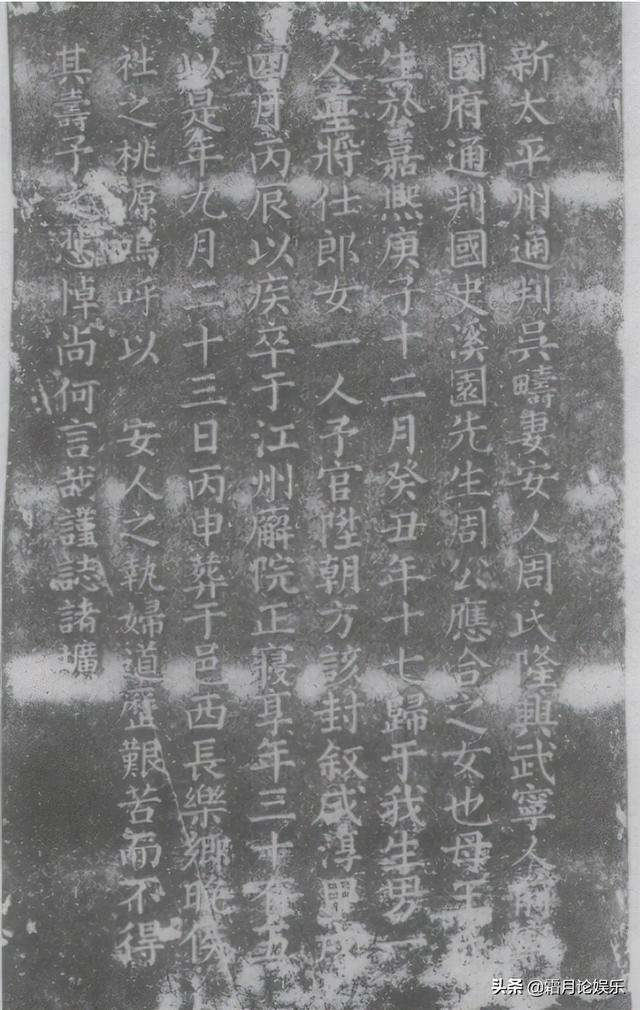 新太平州通判吳疇妻安人周氏隆興武寧人前
國府通判國史溪園先生周公應合之女也母王
生於嘉熙庚子十二月癸丑年十七歸于我生男一
人垕將仕郎女一人予官陞朝方該封敘咸淳甲戌
四月丙辰以疾卒于江州廨院正寢享年三十有五
以是年九月二十三日丙申葬于邑西長樂鄉晚侯
社之桃源嗚呼以 安人之執婦道歷艱苦而不得
其壽予之悲悼尚何言哉謹誌諸壙
头条 @霜月论娱乐